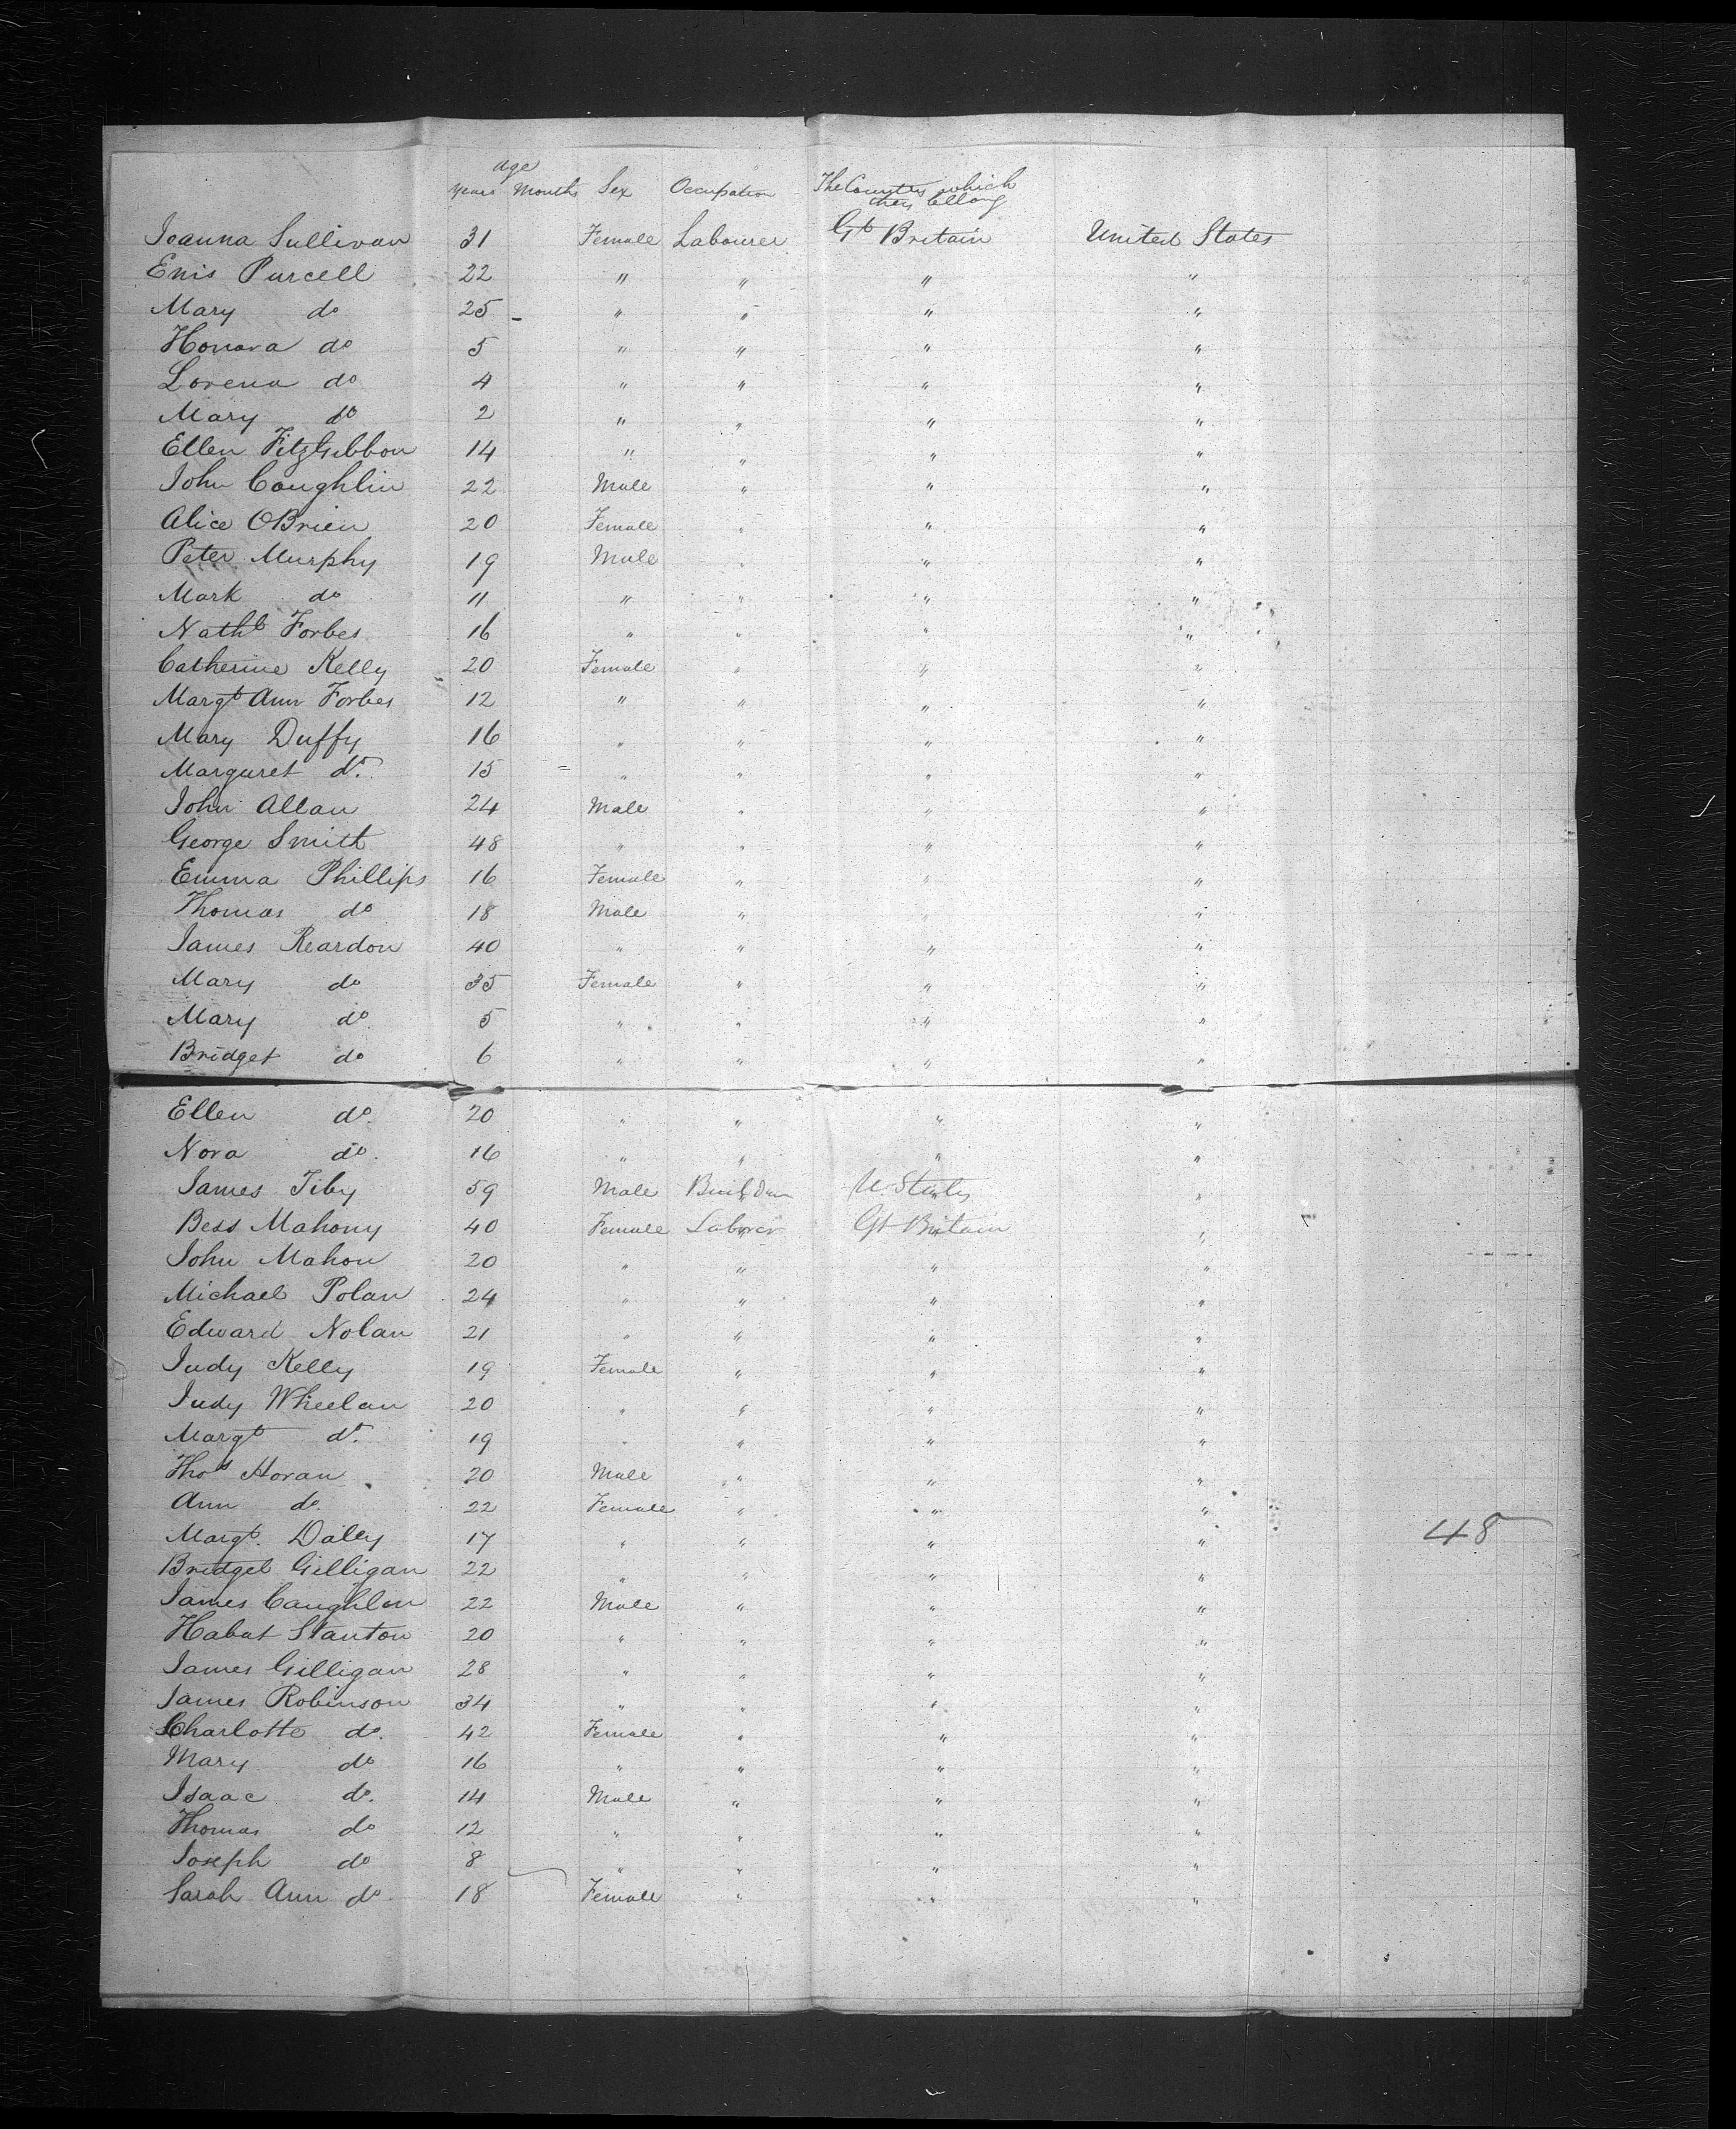 age
Years Months Sex Occupation The Country which they bellong
Joanna Sullivan 31 Female Labourer Gt Britain United States
Enis Purcell 22 " " " "
Mary do 25 " " " "
Honora do 5 " " " "
Lorena do 4 " " " "
Mary do 2 " " " "
Ellen FitzGibbon 14 " " " "
John Coughlin 22 Male " " "
Alice OBrien 20 Female " " "
Peter Murphy 19 Male " " "
Mark do 11 " " " "
Nathl Forbes 16 " " " "
Catherine Kelly 20 Female " " "
Margt Ann Forbes 12 " " " "
Mary Duffy 16 " " " "
Margaret do. 15 " " " "
John Allan 24 Male " " "
George Smith 48 " " " "
Emma Phillips 16 Female " " "
Thomas do 18 Male " " "
James Reardon 40 " " " "
Mary do 35 Female " " "
Mary do. 5 " " " "
Bridget do 6 " " " "
Ellen do. 20 " " " "
Nora do. 16 " " " "
James Tiby 59 Male U. States "
Bess Mahony 40 Female Laborer Gt Britain "
John Mahon 20 " " " "
Michael Polan 24 " " " "
Edward Nolan 21 " " " "
Judy Kelly 19 Female " " "
Judy Wheelan 20 " " " "
Margt do. 19 " " " "
Thos Horan 20 Male " " "
Ann do. 22 Female " " "
Margt. Daley 17 " " " " 48
Bridget Gilligan 22 " " " "
James Caughlan 22 Male " " "
Habat Stanton 20 " " " "
James Gilligan 28 " " " "
James Robinson 34 " " " "
Charlotte do. 42 Female " " "
Mary do 16 " " " "
Isaac do. 14 Male " " "
Thomas do 12 " " " "
Joseph do 8 " " " "
Sarah Ann do. 18 Female " " "